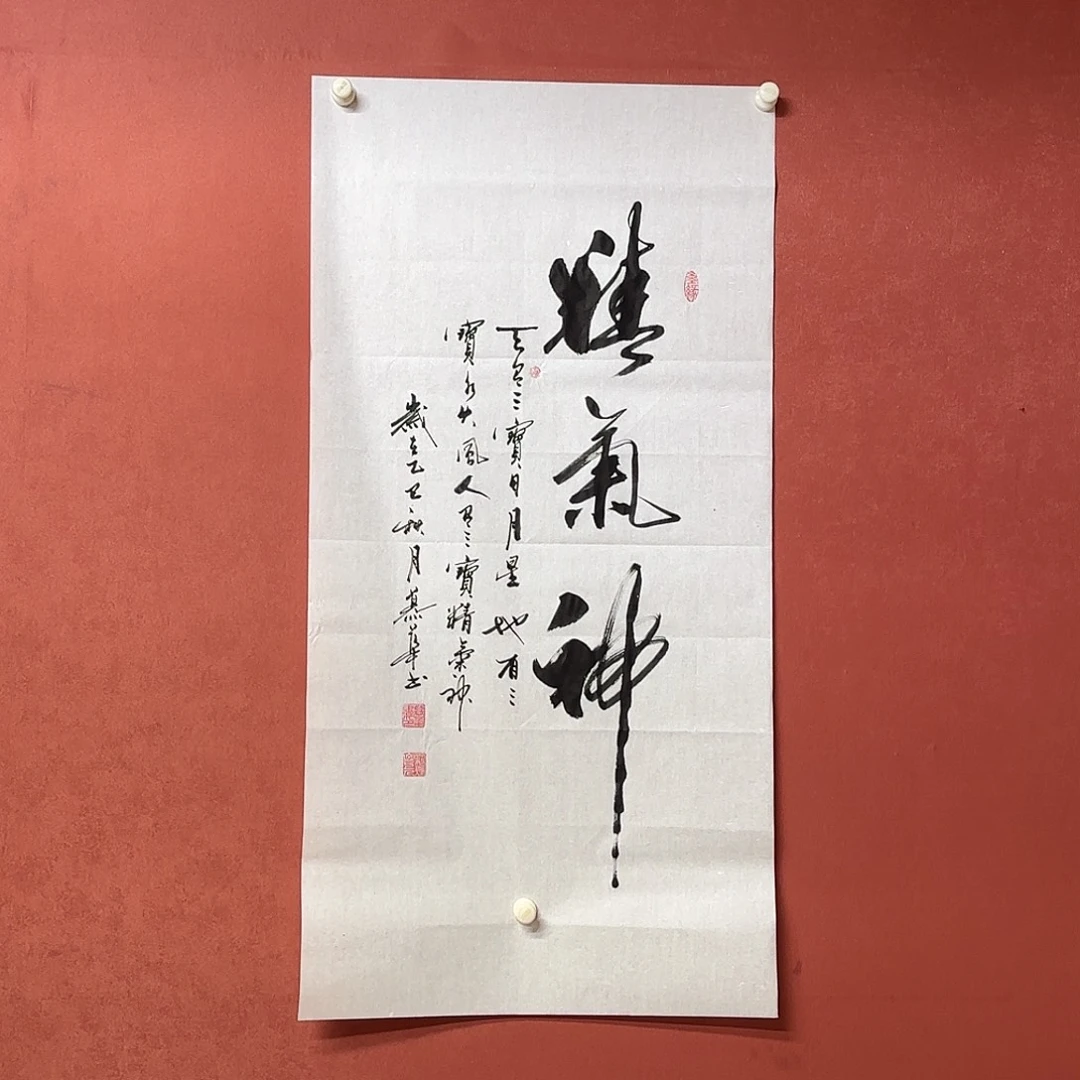 精氣神
天有三寶日月星地有三
寶水火風人有三寶精氣神
歲在乙巳秋月慕華書